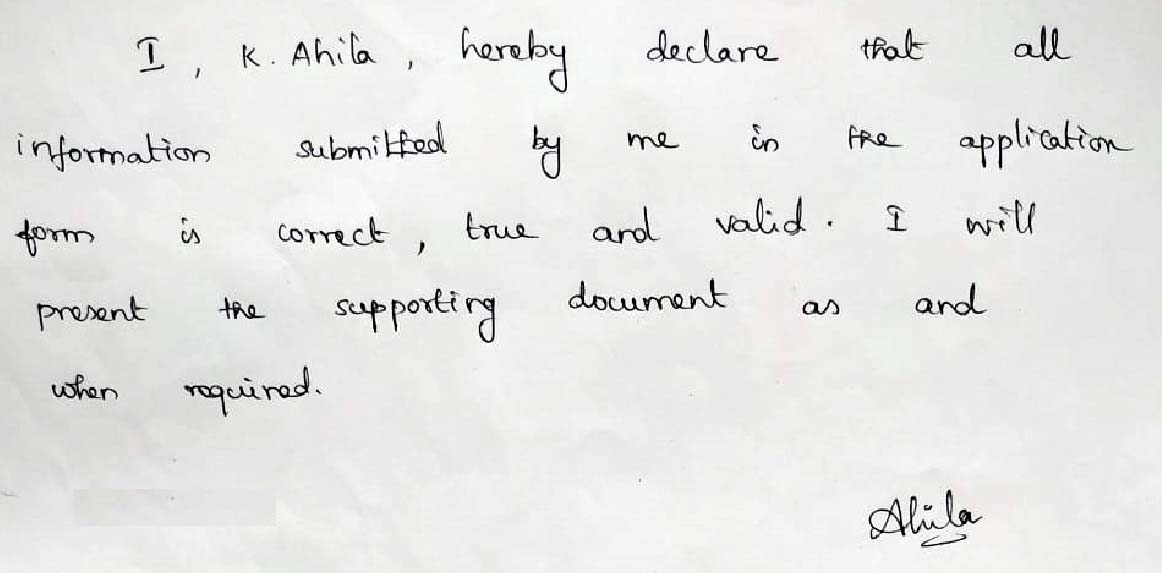 I, K. Ahila, hereby declare that all
information submitted by me in the application
form is correct, true and valid. I will
present the supporting document as and
when required.
Ahila